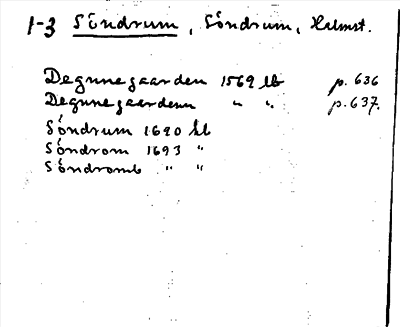 1-3 Söndrum, Söndrum, Halmst.
Degnnegaarden 1569 lb p. 636
Degnnegaardenn " " p. 637.
Söndrum 1690 hl
Söndrom 1693 "
Söndromb " "